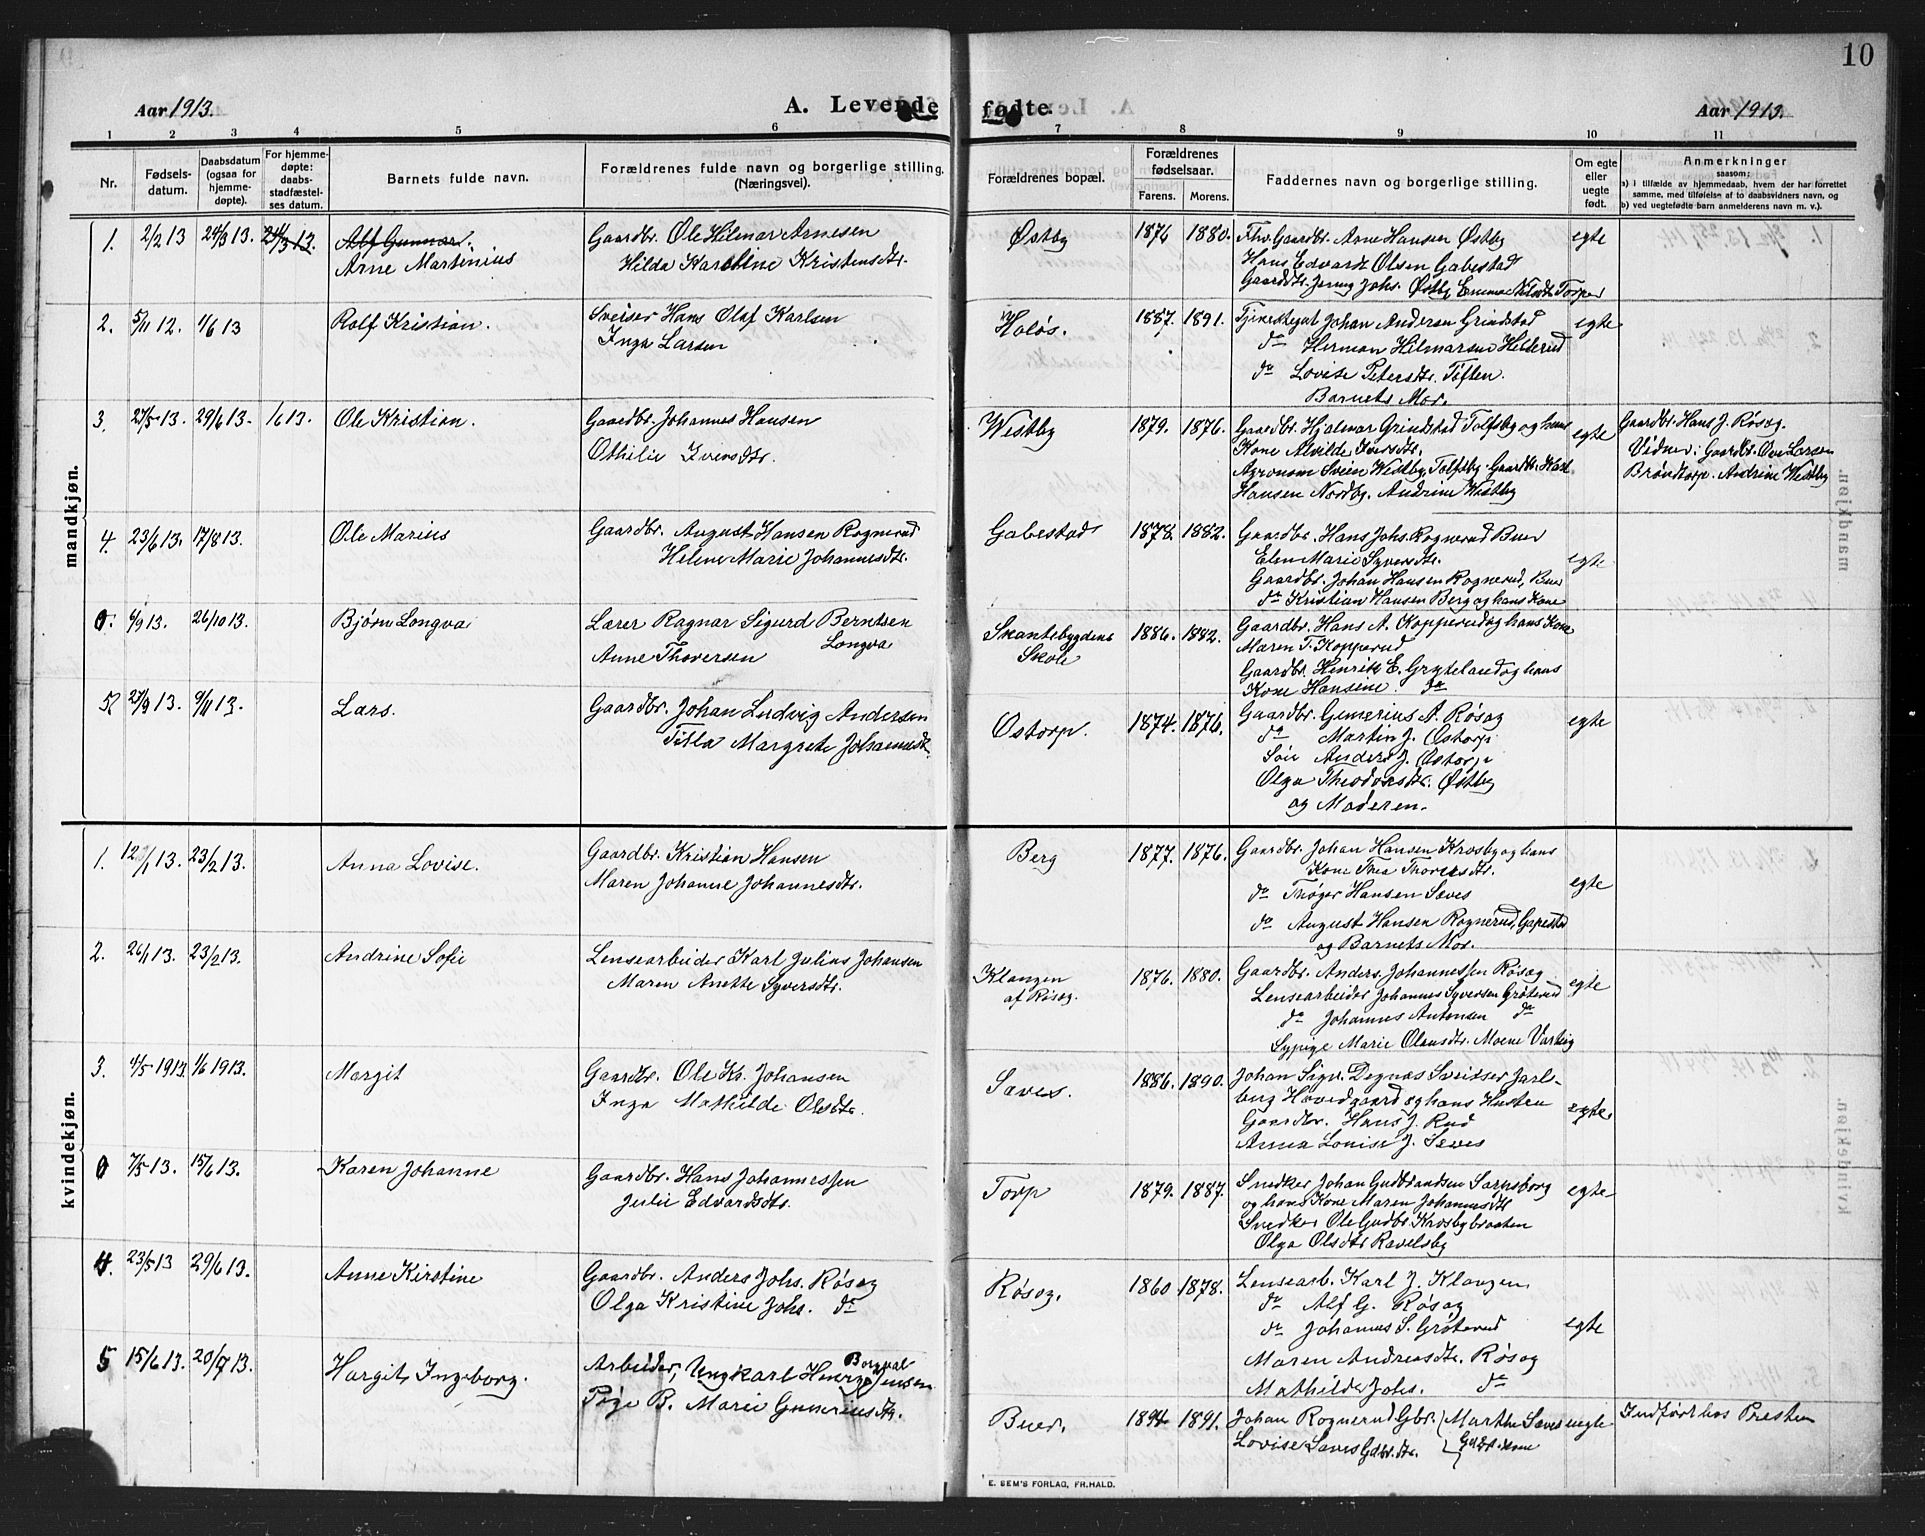 10
Aar 1913.
A. Levende fødte.
Aar 1913.
1 2 3 4 5 6 7 8 9 10 11
Nr.
Fødsels-
datum.
Daabsdatum
(ogsaa for
hjemme-
døpte).
For hjemme-
døpte:
daabs-
stadfæstel-
ses datum.
Barnets fulde navn.
Forældrenes fulde navn og borgerlige stilling.
(Næringsvei).
Forældrenes bopæl.
Forældrenes
fødselsaar.
Farens. Morens.
Faddernes navn og borgerlige stilling.
Om egte
eller
uegte
født.
Anmerkninger
saasom;
a) i tilfælde av hjemmedaab, hvem der har forrettet
samme, med tilføielse af to daabsvidners navn, og
b) ved uegtefødte barn anmelderens navn m. v.).
mandkjøn.
1. 2/2 13 24/3 13. 24/3 13. Alf Gunnar.
Arne Martinius
Gaardbr. Ole Hilmar Arnesen
Hilda Karoline Kristensdtr.
Østby 1876 1880.
Fhv. Gaardbr. Arne Hansen Østby
Hans Edvardt Olsen Gabestad
Gaarddtr. Jenny Johs. Østby Emma Torper
egte
2. 5/11 12. 1/6 13 Rolf Kristian.
Sveiser Hans Olaf Karlsen
Inga Larsen
Holøs. 1887. 1891.
Tjenestegut Johan Andersen Grindstad
do Herman Hilmarsen Hilderud
do Lovise Petersdtr. Toften.
Barnets Mor.
egte
3. 27/5 13. 29/6 13. 1/6 13. Ole Kristian.
Gaardbr. Johannes Hansen
Othilie Iversdtr.
Westby 1879. 1876.
Gaardbr. Hjalmar Grindstad Tolfsby og hans
Kone Alvilde Iversdtr.
Agronom Svein Westby, Tolfsby. Gaardbr. Karl
Hansen Nordby. Andrine Westby
egte
Gaardbr. Hans J. Røsæg.
Vidner: Gaardbr. Ove Larsen
Brøndtorp. Andrine Westby
4. 23/6 13. 17/8 13. Ole Marius
Gaardbr. August Hansen Rognerud
Helene Marie Johannesdtr.
Gabestad 1878. 1882.
Gaardbr. Hans Johs. Rognerud Buer
Elen Marie Syversdtr.
Gaardbr. Johan Hansen Rognerud, Buer
do Kristian Hansen Berg og hans Kone
egte
0. 6/9 13. 26/10 13. Bjørn Longva
Lærer Ragnar Sigurd Berntsen
Longva
Anne Thoresen
Skantebygdens
Skole
1886. 1882.
Gaardbr. Hans A. Kopperud og hans Kone
Maren T. Kopperud
Gaardbr. Henrik E. Gryteland og hans
Kone Hansine do
5. 27/9 13. 9/11 13. Lars.
Gaardbr. Johan Ludvig Andersen
Tilla Margrete Johannesdtr.
Ostorp. 1874. 1876.
Gaardbr. Gunerius A. Røsæg
do Martin J. Østorp
Søn Anders J. Østorp
Olga Theodorsdtr. Østby
og Moderen.
egte
kvindekjøn.
1. 12/1 13. 23/2 13. Anna Lovise.
Gaardbr. Kristian Hansen
Maren Johanne Johannesdtr.
Berg 1877. 1876.
Gaardbr. Johan Hansen Krosby og hans
Kone Thea Thoresdtr.
do Thøger Hansen Sæves
do August Hansen Rognerud, Gapestad
og Barnets Mor.
egte
2. 26/1 13. 23/2 13. Andrine Sofie
Lensearbeider Karl Julius Johansen
Maren Anette Syversdtr.
Klangen
af Røsæg.
1876. 1880.
Gaardbr. Anders Johannessen Røsæg
Lensearbeider Johannes Syversen Grøterud
do Johannes Antonsen do
Sypige Marie Olausdtr. Moene Varteig
egte
3. 4/5 1913. 1/6 1913. Margit
Gaardbr. Ole Kr. Johansen
Inga Mathilde Olsdtr.
Sæves. 1886. 1890.
Johan Sigv. Degnæs Sveitser Jarls-
berg Hovedgaard og hans Husten
Gaardbr. Hans J. Rud
Anna Louise J. Sæves
egte
0 7/5 13. 15/6 13. Karen Johanne
Gaardbr. Hans Johannessen
Julie Edvardsdtr.
Torp 1879. 1887.
Snedker Johan Gudbrandsen Sarpsborg
og hans Kone Maren Johannesdtr
Snedker Ole Gudbr. Krosbybraaten
Olga Olsdtr Ravelsby
egte
4. 23/5 13 29/6 13. Anne Kirstine
Gaardbr. Anders Johs. Røsæg
Olga Kristine Johs. do
Røsæg. 1860 1878.
Lensearb. Karl J. Klangen
do Alf G. Røsæg
do Johannes S. Grøterud
Maren Andreasdtr. Røsæg
Mathilde Johs. do
egte
5 15/6 13. 20/7 13. Hargit, Ingeborg.
Arbeider, Ungkarl Henry Borgval Jensen
Pige B. Marie Guneriusdtr.
Buer. 1894 1891.
Johan Rognerud Gbr. Marthe Sæves
Lovise Sæves Gdbr. dtr. Gdbr. kone
uegte
Indført hos Presten
E. SEM'S FORLAG, FR.HALD.